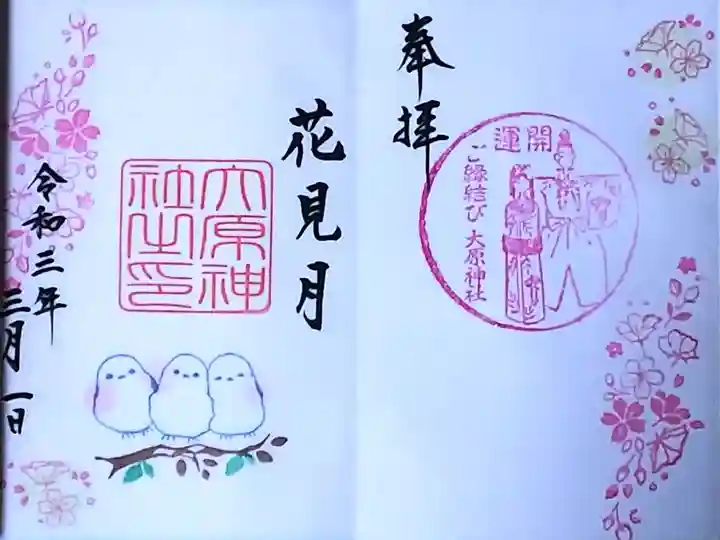 奉拝
開運
ご縁結び 大原神社
花見月
大原神
社之印
令和三年
三月一日